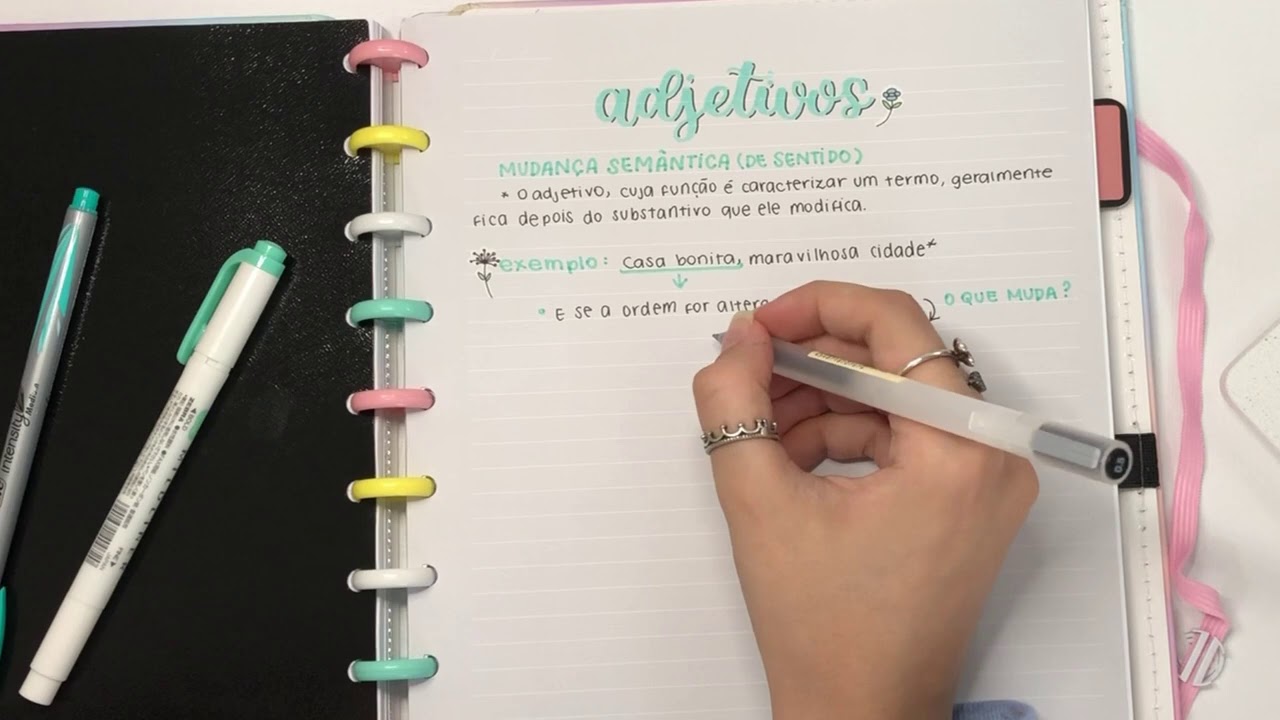 adjetivos
MUDANÇA SEMÂNTICA (DE SENTIDO)
* O adjetivo, cuja função é caracterizar um termo, geralmente
fica depois do substantivo que ele modifica.
exemplo: casa bonita, maravilhosa cidade*
• E se a ordem for altera
O QUE MUDA?
intensity
Medium
0.5